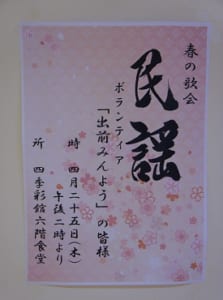 春の歌会
民謡
ボランティア
「出前みんよう」の皆様
時 四月二十五日(木)
午後二時より
所 四季彩館六階食堂